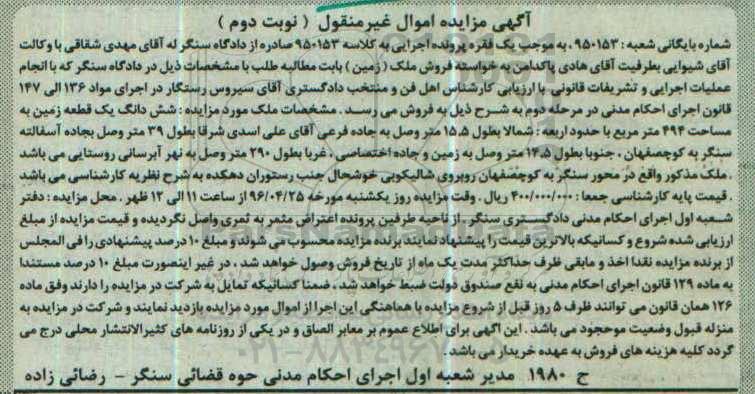 آگهی مزایده اموال غیرمنقول ( نوبت دوم )
شماره بایگانی شعبه : ۹۵۰۱۵۳ ، به موجب یک فقره پرونده اجرایی به کلاسه ۹۵۰۱۵۳ صادره از دادگاه سنگر له آقای مهدی شقاقی با وکالت
آقای شیوایی بطرفیت آقای هادی پاکدامن به خواسته فروش ملک ( زمین ) بابت مطالبه طلب با مشخصات ذیل در دادگاه سنگر که با انجام
عملیات اجرایی و تشریفات قانونی با ارزیابی کارشناس اهل فن و منتخب دادگستری آقای سیروس رستگار در اجرای مواد ۱۳۶ الی ۱۴۷
قانون اجرای احکام مدنی در مرحله دوم به شرح ذیل به فروش می رسد . مشخصات ملک مورد مزایده : شش دانگ یک قطعه زمین به
مساحت ۴۹۴ متر مربع با حدود اربعه : شمالا بطول ۱۵،۵ متر وصل به جاده فرعی آقای علی اسدی شرقا بطول ۳۹ متر وصل بجاده آسفالته
سنگر به کوچصفهان ، جنوبا بطول ۱۴،۵ متر وصل به زمین و جاده اختصاصی ، غربا بطول ۲۹۰ متر وصل به نهر آبرسانی روستایی می باشد
. ملک مذکور واقع در محور سنگر به کوچصفهان روبروی شالیکوبی خوشحال جنب رستوران دهکده به شرح نظریه کارشناسی می باشد
. قیمت پایه کارشناسی جمعا : ۴۰۰/۰۰۰/۰۰۰ ریال . وقت مزایده روز یکشنبه مورخه ۹۶/۰۴/۲۵ از ساعت ۱۱ الی ۱۲ ظهر . محل مزایده : دفتر
شعبه اول اجرای احکام مدنی دادگستری سنگر . از ناحیه طرفین پرونده اعتراض مثمر به ثمری واصل نگردیده و قیمت مزایده از مبلغ
ارزیابی شده شروع و کسانیکه بالاترین قیمت را پیشنهاد نمایند برنده مزایده محسوب می شوند و مبلغ ۱۰ درصد پیشنهادی را فی المجلس
از برنده مزایده نقدا اخذ و مابقی ظرف حداکثر مدت یک ماه از تاریخ فروش وصول خواهد شد ، در غیر اینصورت مبلغ ۱۰ درصد مستندا
به ماده ۱۲۹ قانون اجرای احکام مدنی به نفع صندوق دولت ضبط خواهد شد . ضمنا کسانیکه تمایل به شرکت در مزایده را دارند وفق ماده
۱۲۶ همان قانون می توانند ظرف ۵ روز قبل از شروع مزایده با هماهنگی این اجرا از اموال مورد مزایده بازدید نمایند و شرکت در مزایده به
منزله قبول وضعیت موحجود می باشد . این اگهی برای اطلاع عموم بر معابر الصاق و در یکی از روزنامه های کثیرالانتشار محلی درج می
گردد کلیه هزینه های فروش به عهده خریدار می باشد .
ح ۱۹۸۰ مدیر شعبه اول اجرای احکام مدنی حوه قضائی سنگر - رضائی زاده